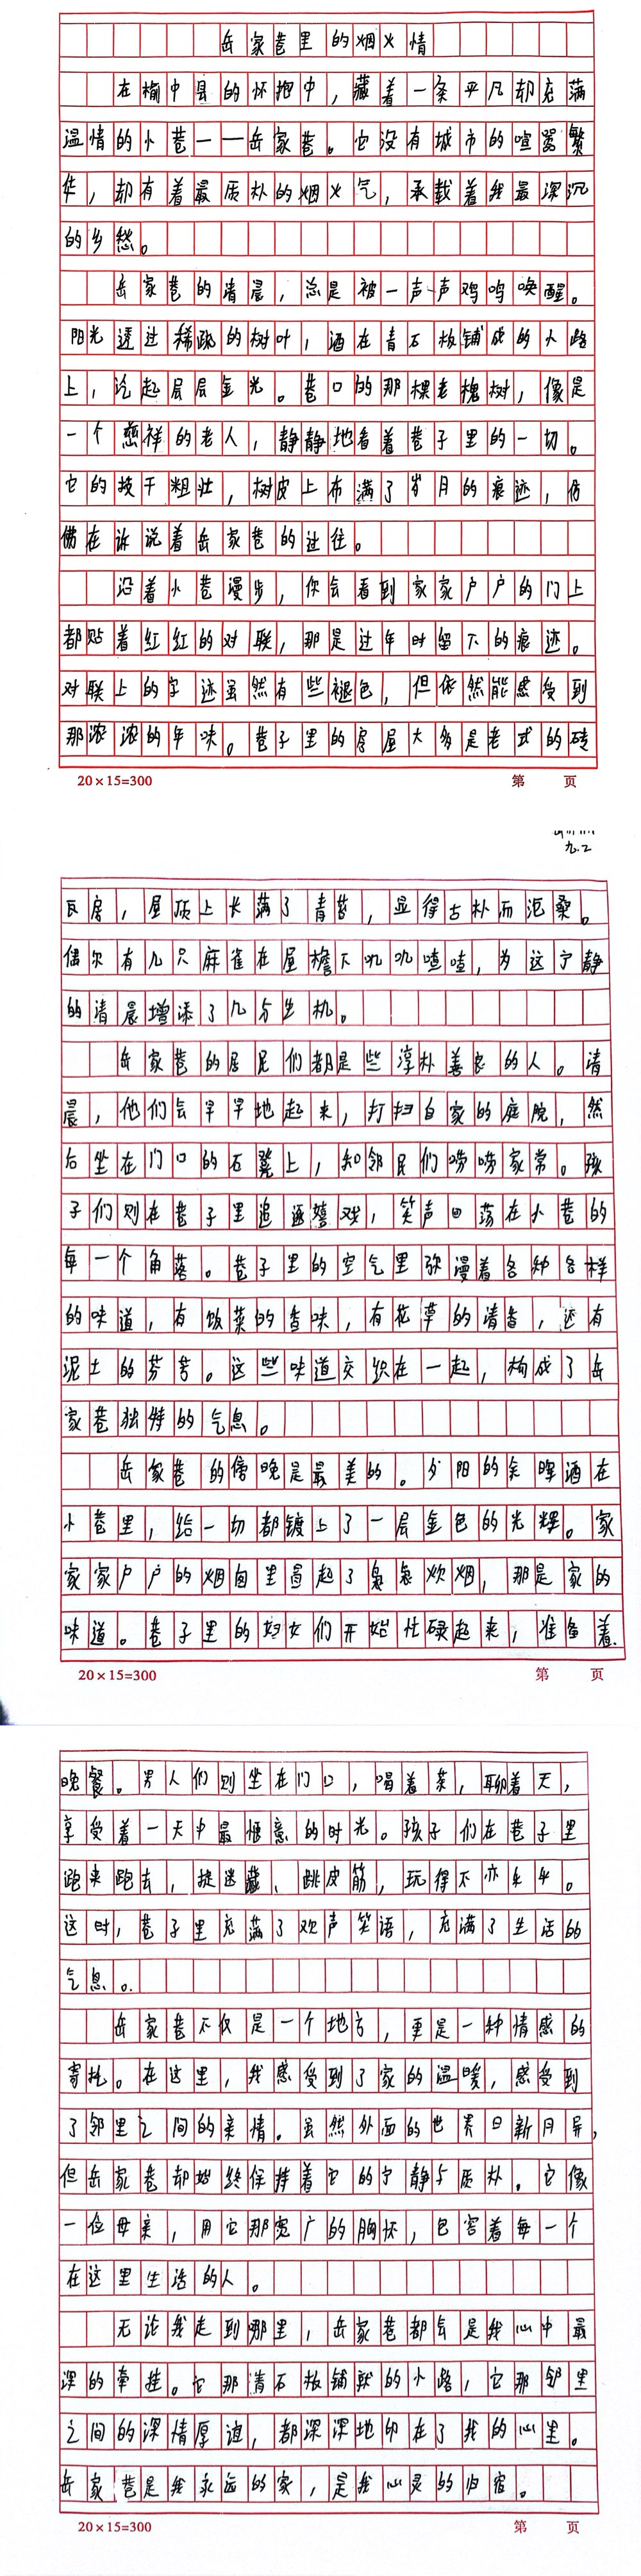 岳家巷里的烟火情
在榆中县的怀抱中，藏着一条平凡却充满
温情的小巷——岳家巷。它没有城市的喧嚣繁
华，却有着最质朴的烟火气，承载着我最深沉
的乡愁。
岳家巷的清晨，总是被一声声鸡鸣唤醒。
阳光透过稀疏的树叶，洒在青石板铺成的小路
上，泛起层层金光。巷口的那棵老槐树，像是
一个慈祥的老人，静静地看着巷子里的一切。
它的枝干粗壮，树皮上布满了岁月的痕迹，仿
佛在诉说着岳家巷的过往。
沿着小巷漫步，你会看到家家户户的门上
都贴着红红的对联，那是过年时留下的痕迹。
对联上的字迹虽然有些褪色，但依然能感受到
那浓浓的年味。巷子里的房屋大多是老式的砖
20×15=300 第 页
九.2
瓦房，屋顶上长满了青苔，显得古朴而沧桑。
偶尔有几只麻雀在屋檐下叽叽喳喳，为这宁静
的清晨增添了几分生机。
岳家巷的居民们都是些淳朴善良的人。清
晨，他们会早早地起来，打扫自家的庭院，然
后坐在门口的石凳上，和邻居们唠唠家常。孩
子们则在巷子里追逐嬉戏，笑声回荡在小巷的
每一个角落。巷子里的空气里弥漫着各种各样
的味道，有饭菜的香味，有花草的清香，还有
泥土的芬芳。这些味道交织在一起，构成了岳
家巷独特的气息。
岳家巷的傍晚是最美的。夕阳的余晖洒在
小巷里，给一切都镀上了一层金色的光辉。家
家家户户的烟囱里冒起了袅袅炊烟，那是家的
味道。巷子里的妇女们开始忙碌起来，准备着
20×15=300 第 页
晚餐。男人们则坐在门口，喝着茶，聊着天，
享受着一天中最惬意的时光。孩子们在巷子里
跑来跑去，捉迷藏、跳皮筋，玩得不亦乐乎。
这时，巷子里充满了欢声笑语，充满了生活的
气息。
岳家巷不仅是一个地方，更是一种情感的
寄托。在这里，我感受到了家的温暖，感受到
了邻里之间的亲情。虽然外面的世界日新月异，
但岳家巷却始终保持着它的宁静与质朴。它像
一位母亲，用它那宽广的胸怀，包容着每一个
在这里生活的人。
无论我走到哪里，岳家巷都会是我心中最
深的牵挂。它那清石板铺就的小路，它那邻里
之间的深情厚谊，都深深地印在了我的心里。
岳家巷是我永远的家，是我心灵的归宿。
20×15=300 第 页